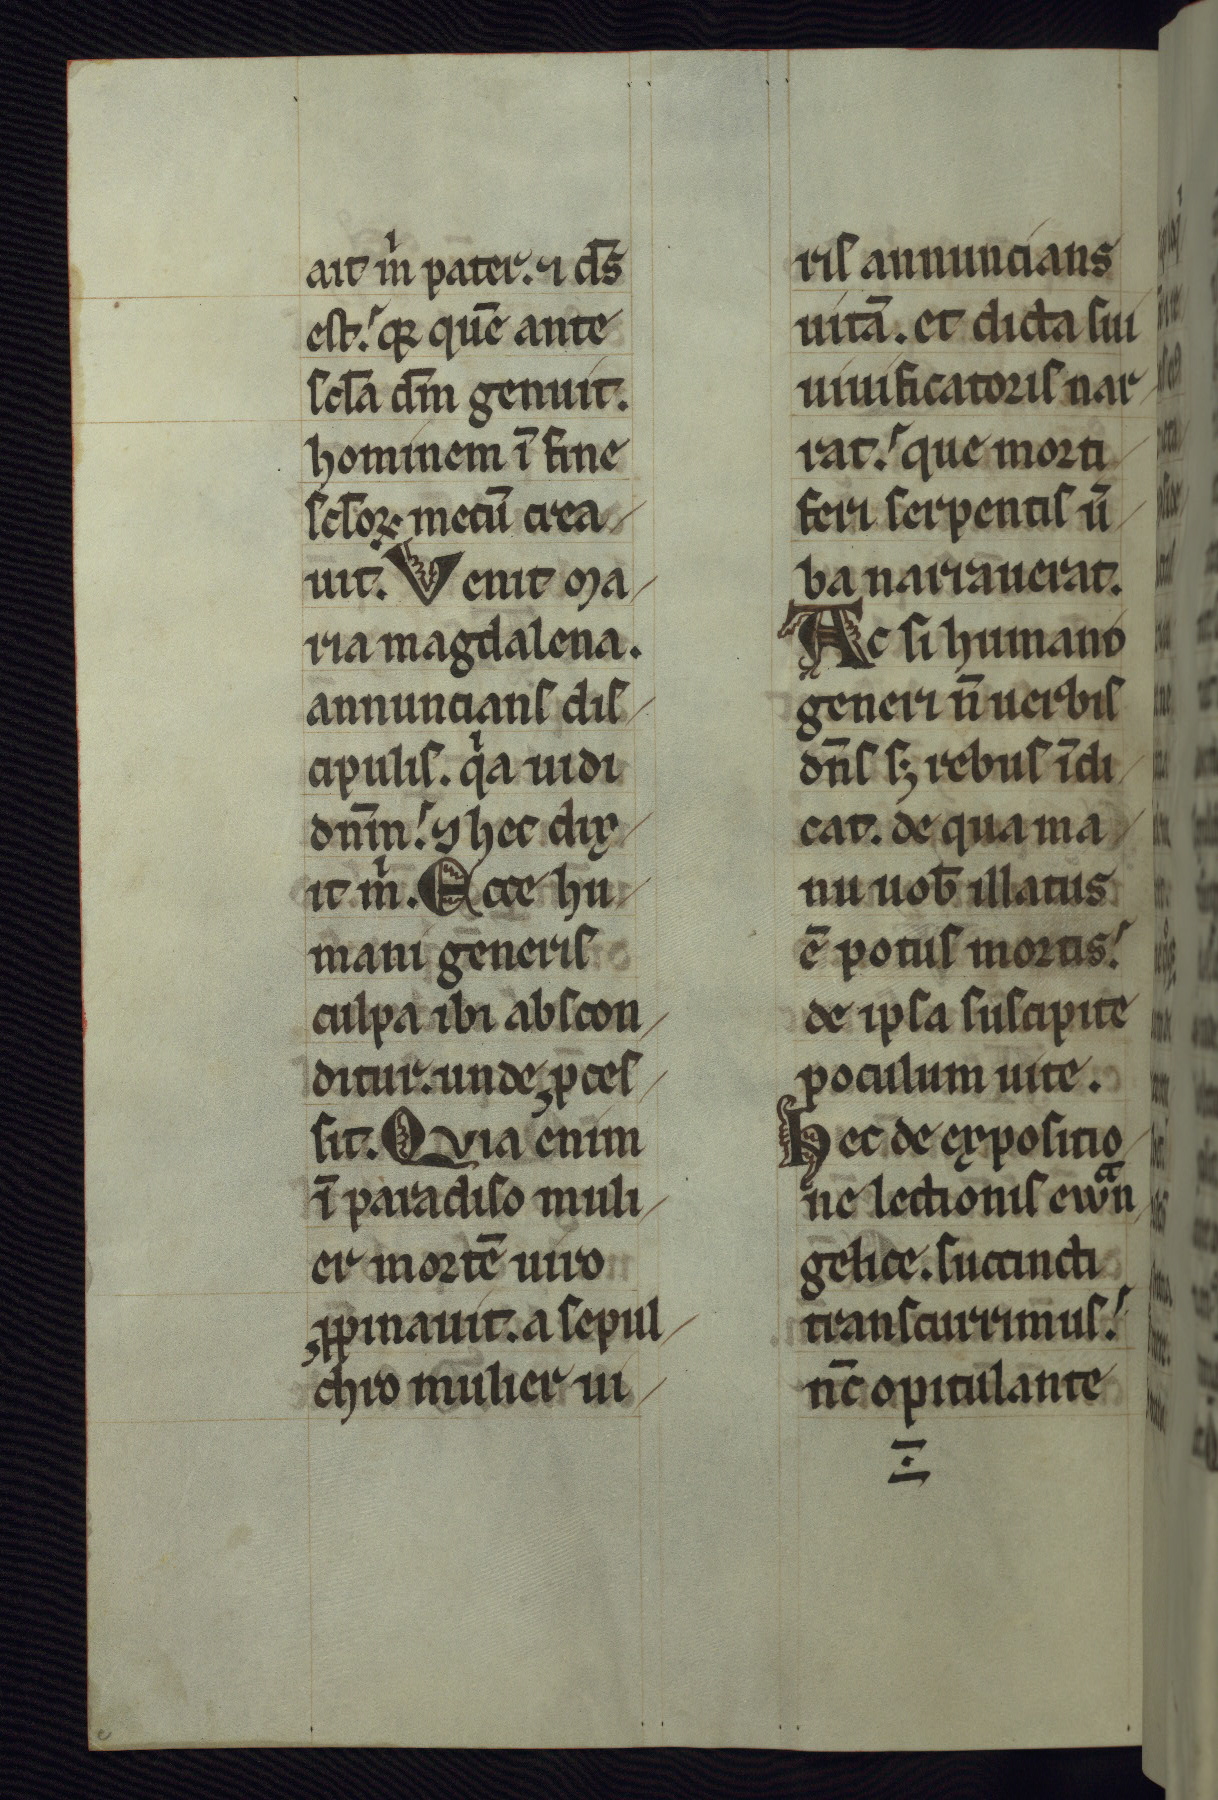 ait m̍ pater. ⁊ ds̄
est.ʹ qꝛ quē ante
scl̄a dm̄ genuit.
hominem ī fine
scl̄oꝝ mecū crea
uit. Venit Ma
ria magdalena.
annuncians dis
cipulis. q̍a uidi
dnm̄.ʹ ⁊ hec dix
it m̍. Ecce hu
mani generis
culpa ibi abscon
ditur. unde ꝓces
sit. Quia enim
ī paradiso muli
er mortē uiro
ꝓpinauit. a sepul
chro mulier ui
ris annuncians
uitā. et dicta sui
uiuificatoris nar
rat.ʹ que morti
feri serpentis ū
ba narrauerat.
Ac si humano
generi n̄ uerbis
dn̄s sꝫ rebus īdi
cat. de qua ma
nu uob̄ illatus
ē potus mortis.ʹ
de ipsa suscipite
poculum uite.
Hec de expositio
ne lectionis ewᵃn
gelice. succincti
transcurrimus.ʹ
nc̄ opitulante